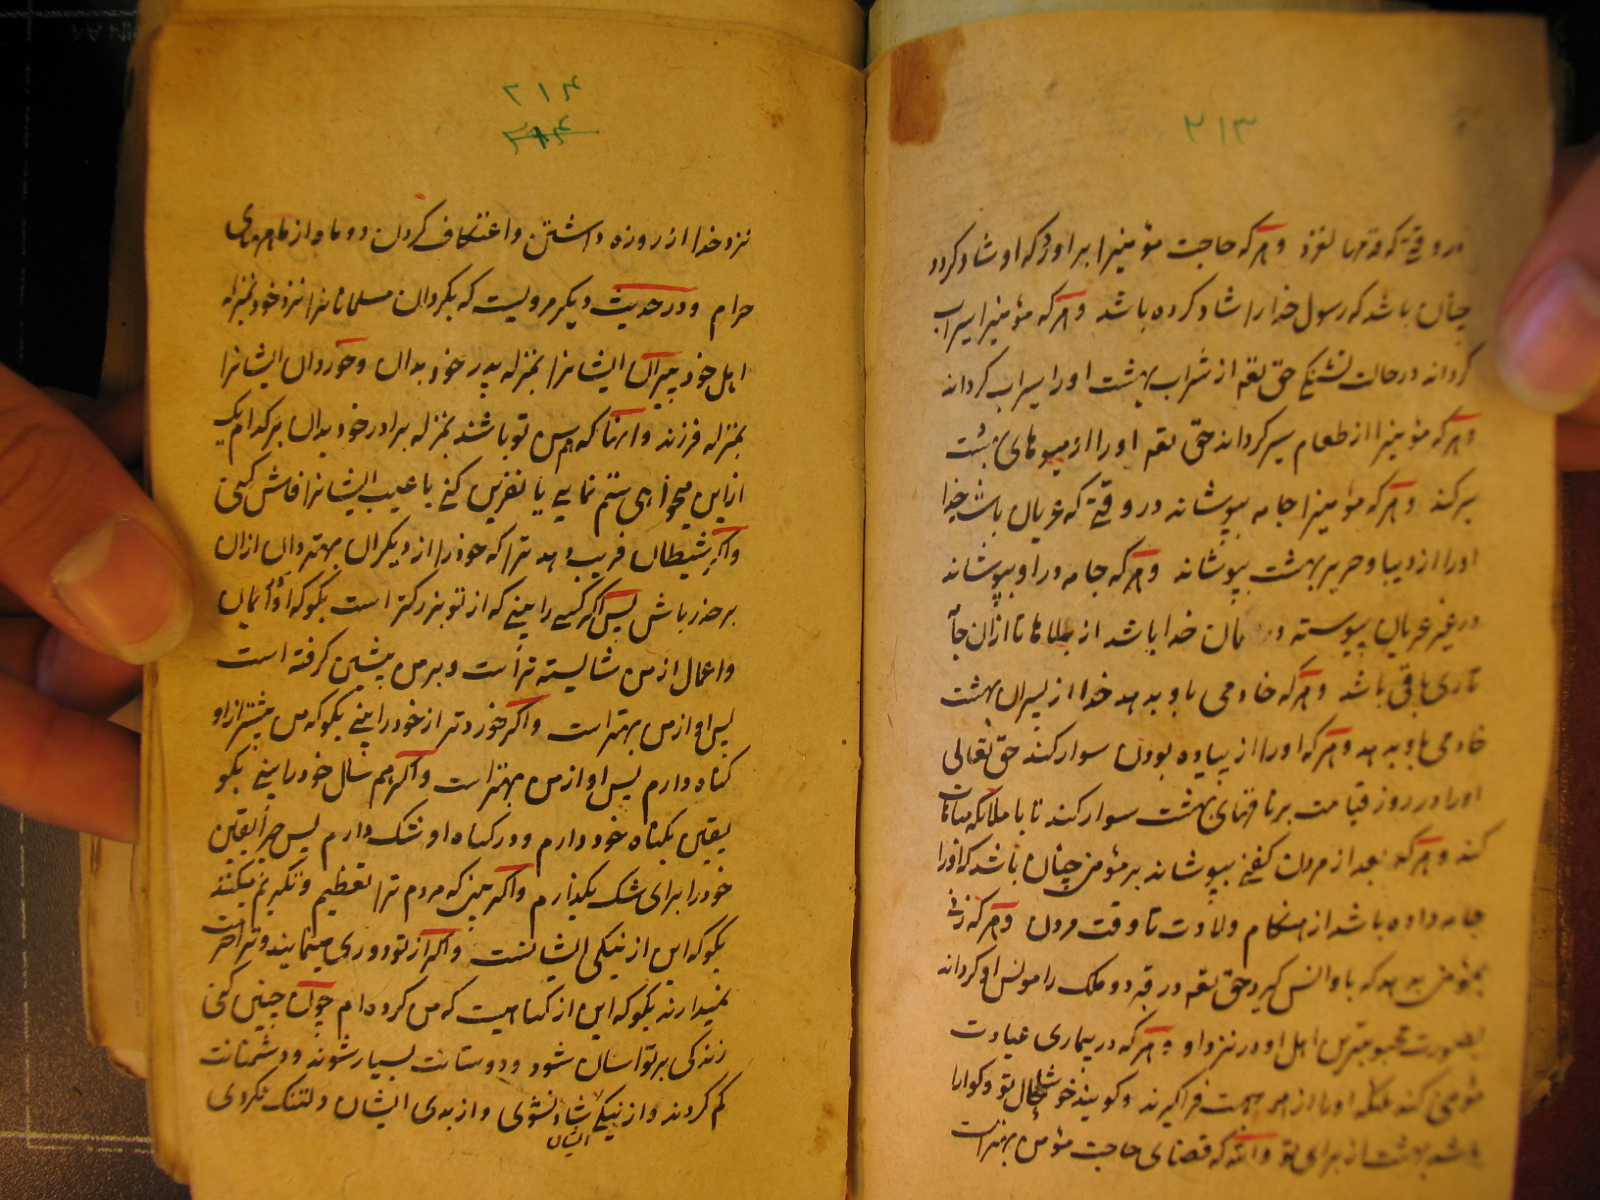 ۲۱۳
در وقتی که قدمها لغزد و هر که حاجت مؤمنیرا براورد که او شاد کردد
چنان باشد که رسول خدا را شاد کرده باشد و هر که مؤمنیرا سیراب
کرداند در حالت تشنکی حق تعم از شراب بهشت او را سیراب کرداند
و هر که مؤمنیرا از طعام سیر کرداند حق تعم او را از میوهای بهشت
سیر کند و هر که مؤمنیرا جامه بپوشاند در وقتی که عریان باشد خدا
او را از دیبا و حریر بهشت بپوشاند و هر که جامه در او بپوشاند
در غیر عریان پیوسته در امان خدا باشد از بلاها تا از ان جامه
تاری باقی باشد و هر که خادمی باو بدهد خدا از پسران بهشت
خادمی باو بدهد و هر که او را از پیاده بودن سوار کند حق تعالی
او را در روز قیامت بر ناقهای بهشت سوار کند تا با ملائکه مباهات
کند و هر که بعد از مردن کفنی بپوشاند بر مؤمن چنان باشد که او را
جامه داده باشد از هنکام ولادت تا وقت مردن و هر که زنی
بمؤمن بدهد که باو انس کیرد حق تعم در قبر دو ملک را مونس او کرداند
بصورت محبوبترین اهل او در نزد او و هر که در بیماری عیادت
مؤمن کند ملائکه او را از هر جهت فراکیرند و کویند خوشا حال تو و کوارا
باشد بهشت از برای تو والله که قضای حاجت مؤمن بهتر است
۲۱۴
نزد خدا از روزه داشتن و اعتکاف کردن دو ماه از ماههای
حرام و در حدیث دیکر مرویست که بکردان مسلمانانرا نزد خود بمنزله
اهل خود پیران ایشانرا بمنزله پدر خود بدان و خوردان ایشانرا
بمنزله فرزند و انها که هم سن تو باشند بمنزله برادر خود بدان بر کدام یک
از این میخواهی ستم نمایی یا نفرین کنی یا عیب ایشانرا فاش کنی
و اکر شیطان فریب دهد ترا که خود را از دیکران بهتر دانی از ان
بر حذر باش پس اکر کسی را بینی که از تو بزرکتر است بکو که او ایمان
و اعمال از من شایسته تر است و بر من پیشی کرفته است
پس او از من بهتر است و اکر خوردتر از خود را بینی بکو که من بیشتر از او
کناه دارم پس او از من بهتر است و اکر هم سال خود را بینی بکو
یقین بکناه خود دارم و در کناه او شک دارم پس چرا یقین
خود را برای شک بکذارم و اکر بینی که مردم ترا تعظیم و تکریم میکنند
بکو که این از نیکی ایشانست و اکر از تو دوری مینمایند و ترا حرمت
نمیدارند بکو که این از کناهیست که من کرده ام چون چنین کنی
زندکی بر تو اسان شود و دوستانت بسیار شوند و دشمنانت
کم کردند و از نیکی ایشان شاد شوی و از بدی ایشان دلتنک نکردی